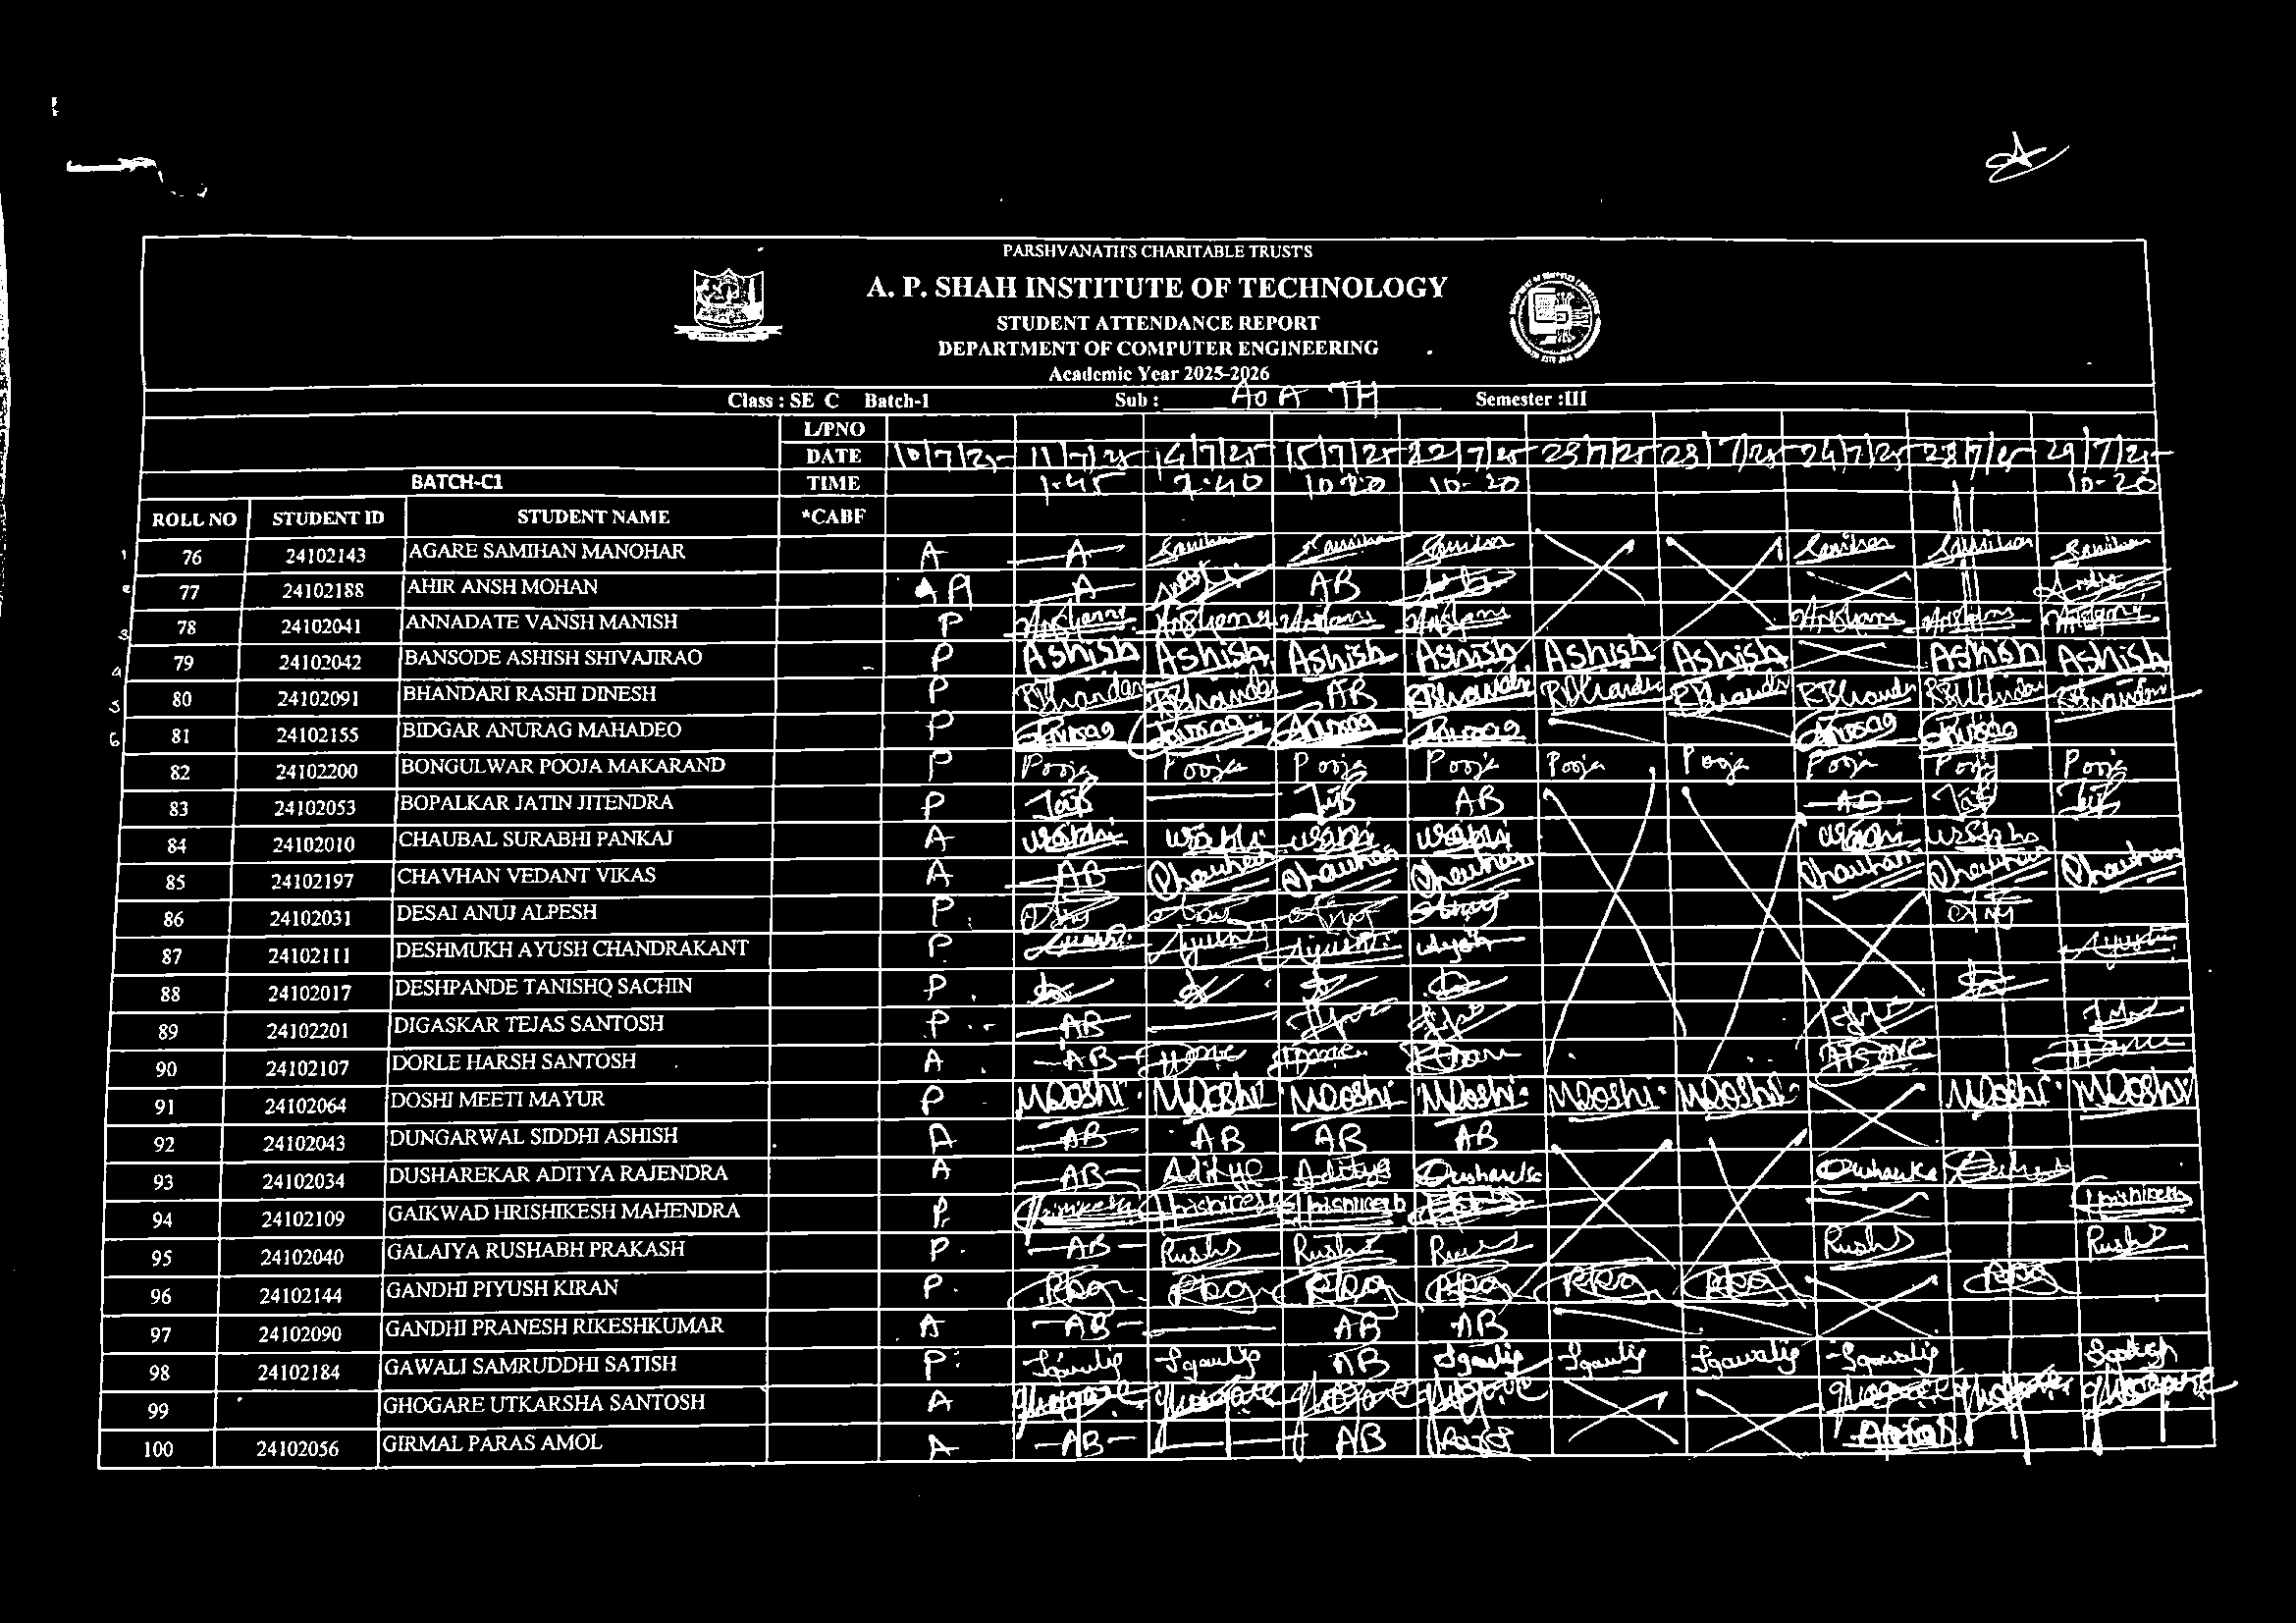 PARSHVANATH'S CHARITABLE TRUST'S
A. P. SHAH INSTITUTE OF TECHNOLOGY
STUDENT ATTENDANCE REPORT
DEPARTMENT OF COMPUTER ENGINEERING
Academic Year 2025-2026
Class : SE C Batch-1 Sub : AOA TH Semester :III
L/PNO
DATE 10/7/25 11/7/25 14/7/25 15/7/25 22/7/25 23/7/25 23/7/25 24/7/25 28/7/25 29/7/25
BATCH-C1 TIME 1.45 10-20 10-20
ROLL NO STUDENT ID STUDENT NAME *CABF
76 24102143 AGARE SAMIHAN MANOHAR A A
77 24102188 AHIR ANSH MOHAN A A AB
78 24102041 ANNADATE VANSH MANISH P
79 24102042 BANSODE ASHISH SHIVAJIRAO P Ashish Ashish Ashish Ashish Ashish Ashish Ashish Ashish
80 24102091 BHANDARI RASHI DINESH P RBhandari RBhandari AB RBhandari RBhandari RBhandari RBhandari RBhandari RBhandari
81 24102155 BIDGAR ANURAG MAHADEO P Anurag Anurag Anurag Anurag Anurag Anurag
82 24102200 BONGULWAR POOJA MAKARAND P Pooja Pooja Pooja Pooja Pooja Pooja Pooja Pooja Pooja
83 24102053 BOPALKAR JATIN JITENDRA P AB AB
84 24102010 CHAUBAL SURABHI PANKAJ A
85 24102197 CHAVHAN VEDANT VIKAS A AB Chauhan Chauhan Chauhan Chauhan Chauhan Chauhan
86 24102031 DESAI ANUJ ALPESH P
87 24102111 DESHMUKH AYUSH CHANDRAKANT P Ayush Ayush Ayush Ayush Ayush
88 24102017 DESHPANDE TANISHQ SACHIN P
89 24102201 DIGASKAR TEJAS SANTOSH P AB
90 24102107 DORLE HARSH SANTOSH A AB
91 24102064 DOSHI MEETI MAYUR P MDoshi MDoshi MDoshi MDoshi MDoshi MDoshi MDoshi MDoshi
92 24102043 DUNGARWAL SIDDHI ASHISH A AB AB AB AB
93 24102034 DUSHAREKAR ADITYA RAJENDRA A AB Aditya Aditya
94 24102109 GAIKWAD HRISHIKESH MAHENDRA P Hrishikesh Hrishikesh Hrishikesh Hrishikesh
95 24102040 GALAIYA RUSHABH PRAKASH P AB
96 24102144 GANDHI PIYUSH KIRAN P
97 24102090 GANDHI PRANESH RIKESHKUMAR A AB AB AB
98 24102184 GAWALI SAMRUDDHI SATISH P AB
99 GHOGARE UTKARSHA SANTOSH A
100 24102056 GIRMAL PARAS AMOL A AB AB